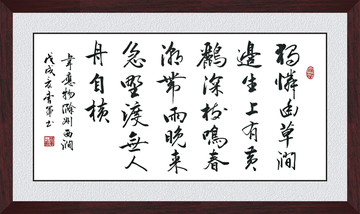 獨憐幽草澗
邊生上有黃
鸝深樹鳴春
潮帶雨晚来
急野渡無人
舟自橫
韋應物滁州西澗
戊戌